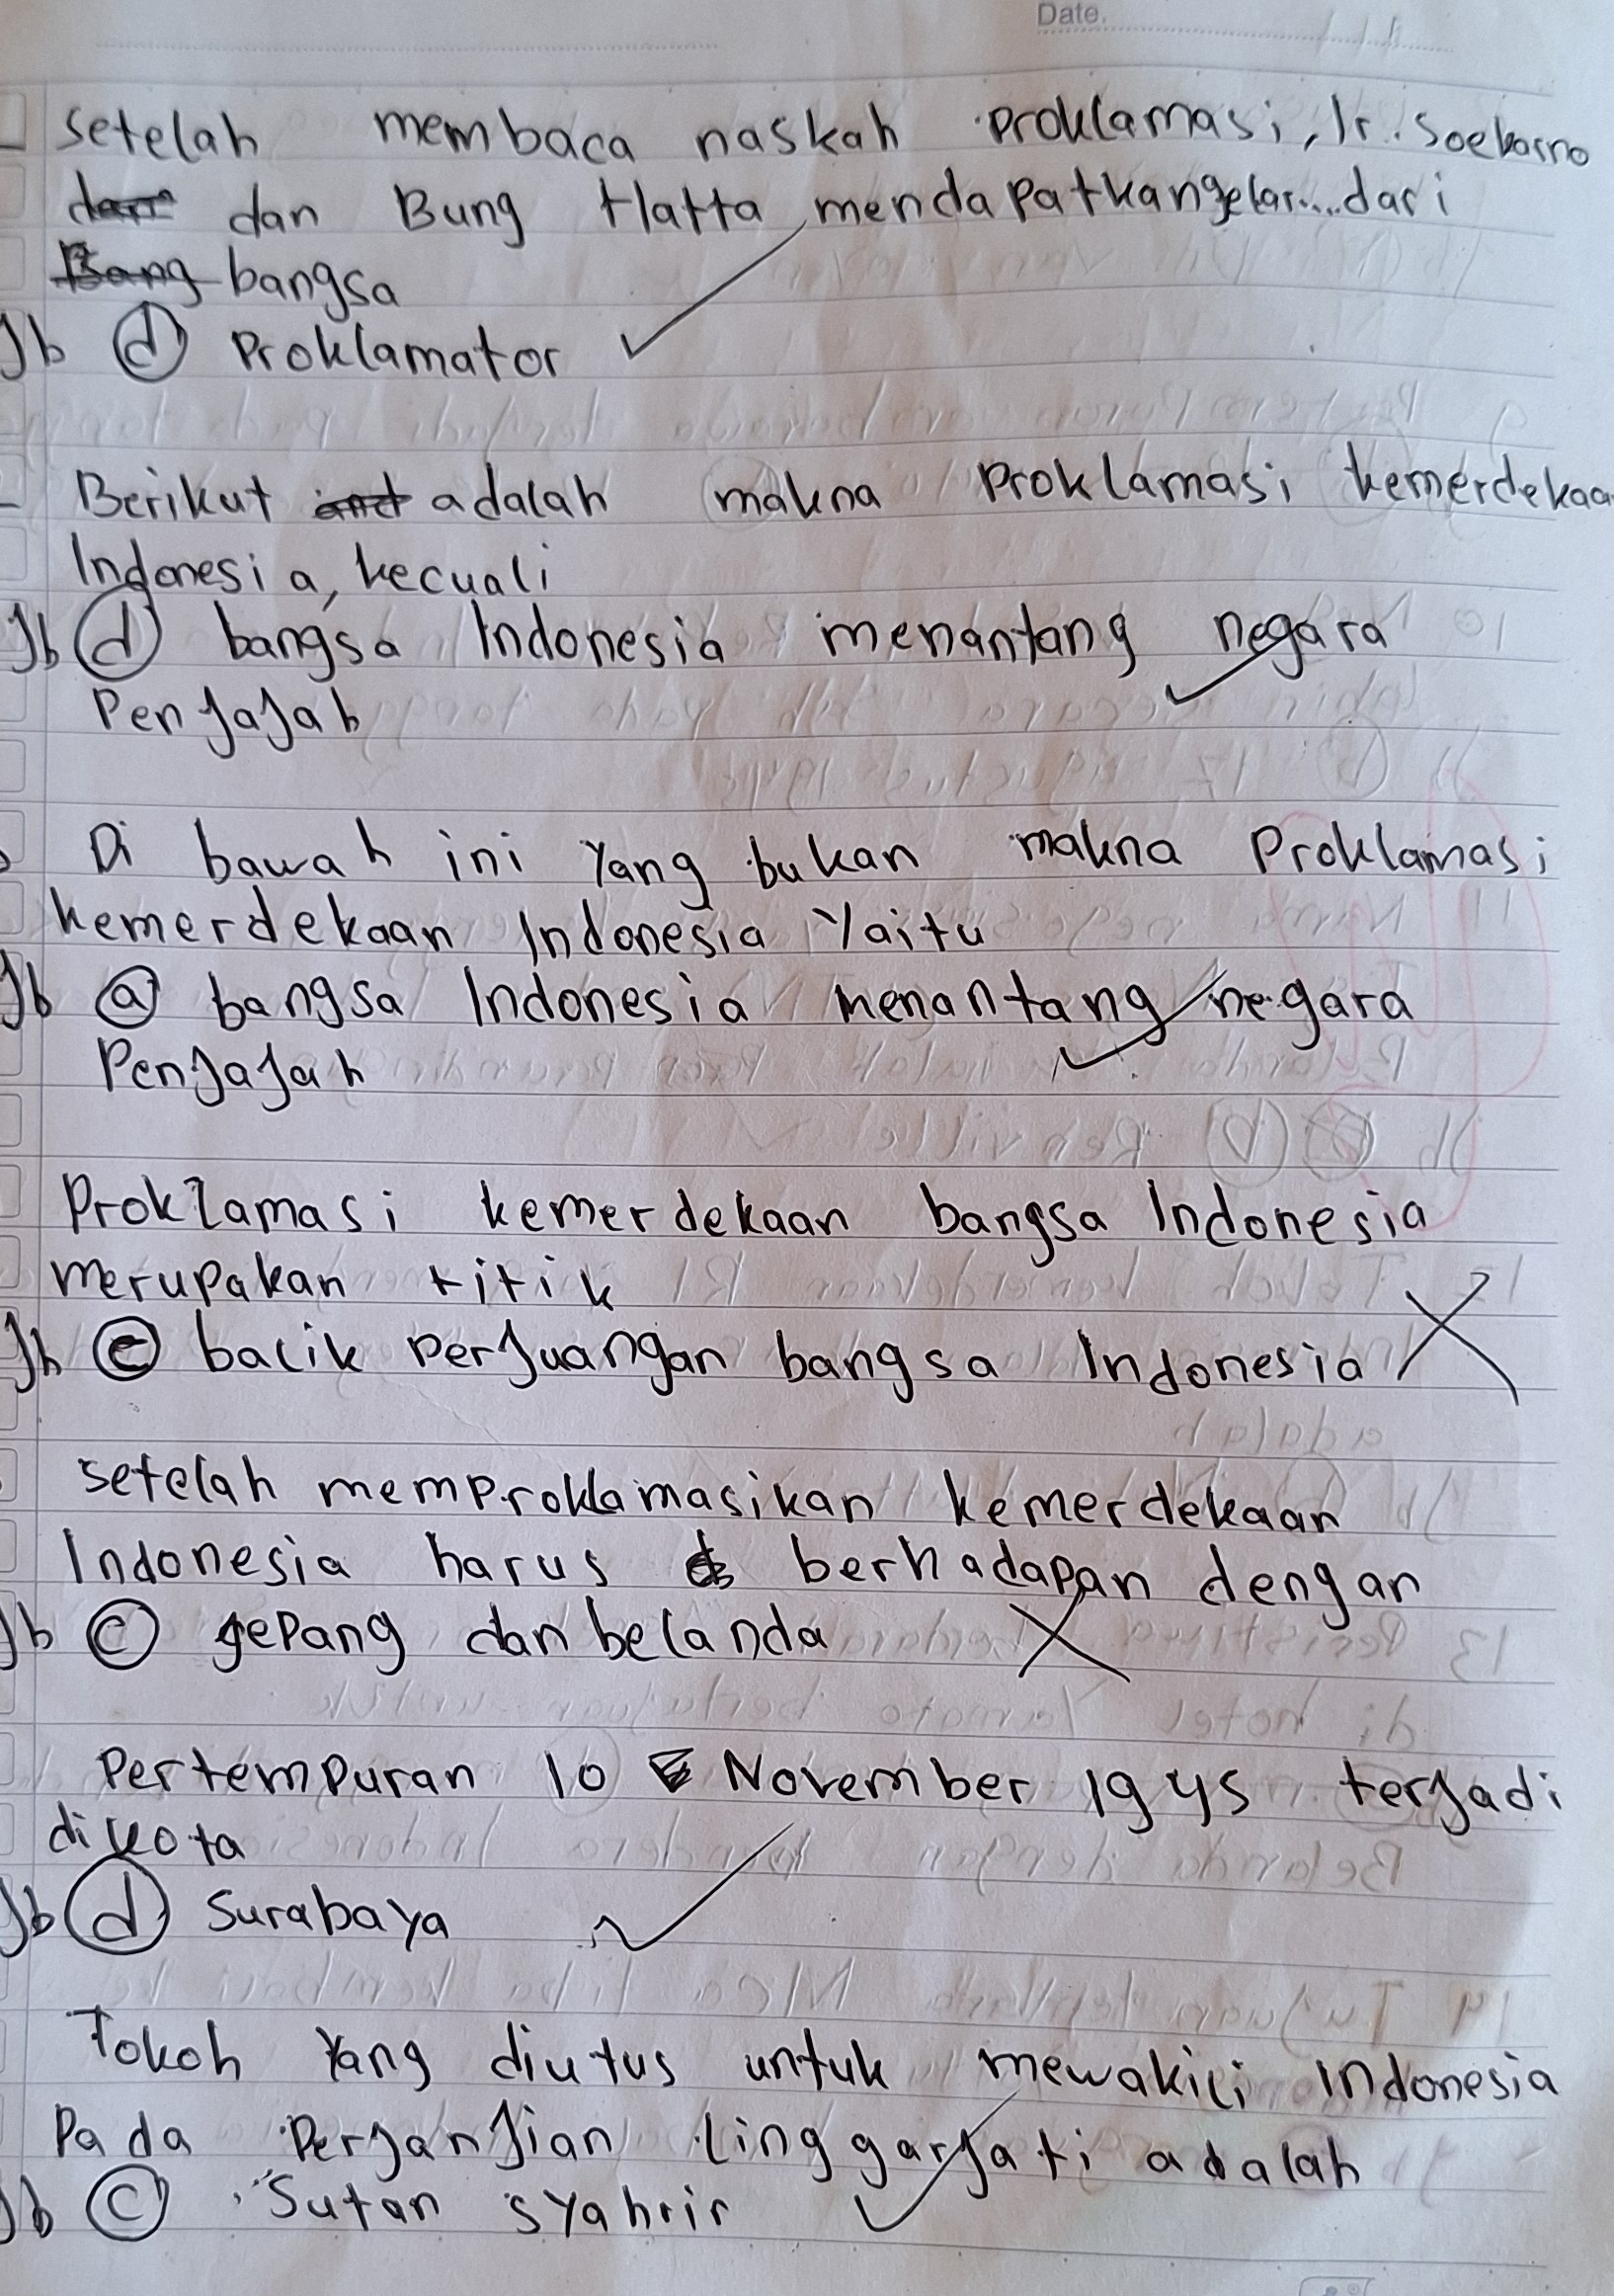 Date.
Setelah membaca naskah Proklamasi, Ir. Soekarno
dan Bung Hatta mendapatkan gelar....dari
bangsa
Jb d Proklamator
Berikut adalah makna Proklamasi kemerdekaa
Indonesia, kecuali
Jb d bangsa Indonesia menantang negara
Penjajah
Di bawah ini Yang bukan makna Proklamasi
kemerdekaan Indonesia Yaitu
Jb a bangsa Indonesia menantang negara
Penjajah
Proklamasi kemerdekaan bangsa Indonesia
merupakan titik
Jb c balik Perjuangan bangsa Indonesia
Setelah memproklamasikan kemerdekaan
Indonesia harus berhadapan dengan
Jb c jepang dan belanda
Pertempuran 10 November 1945 terjadi
dikota
Jb d Surabaya
Tokoh Yang diutus untuk mewakili Indonesia
Pada Perjanjian linggarjati adalah
Jb c Sutan syahrir